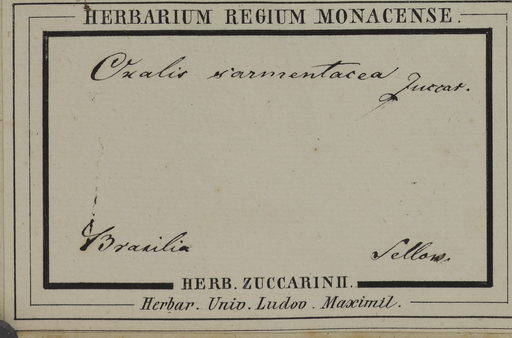 HERBARIUM REGIUM MONACENSE.
Oxalis sarmentacea Zuccar.
Brasilia Sellow.
HERB. ZUCCARINII.
Herbar. Univ. Ludov. Maximil.